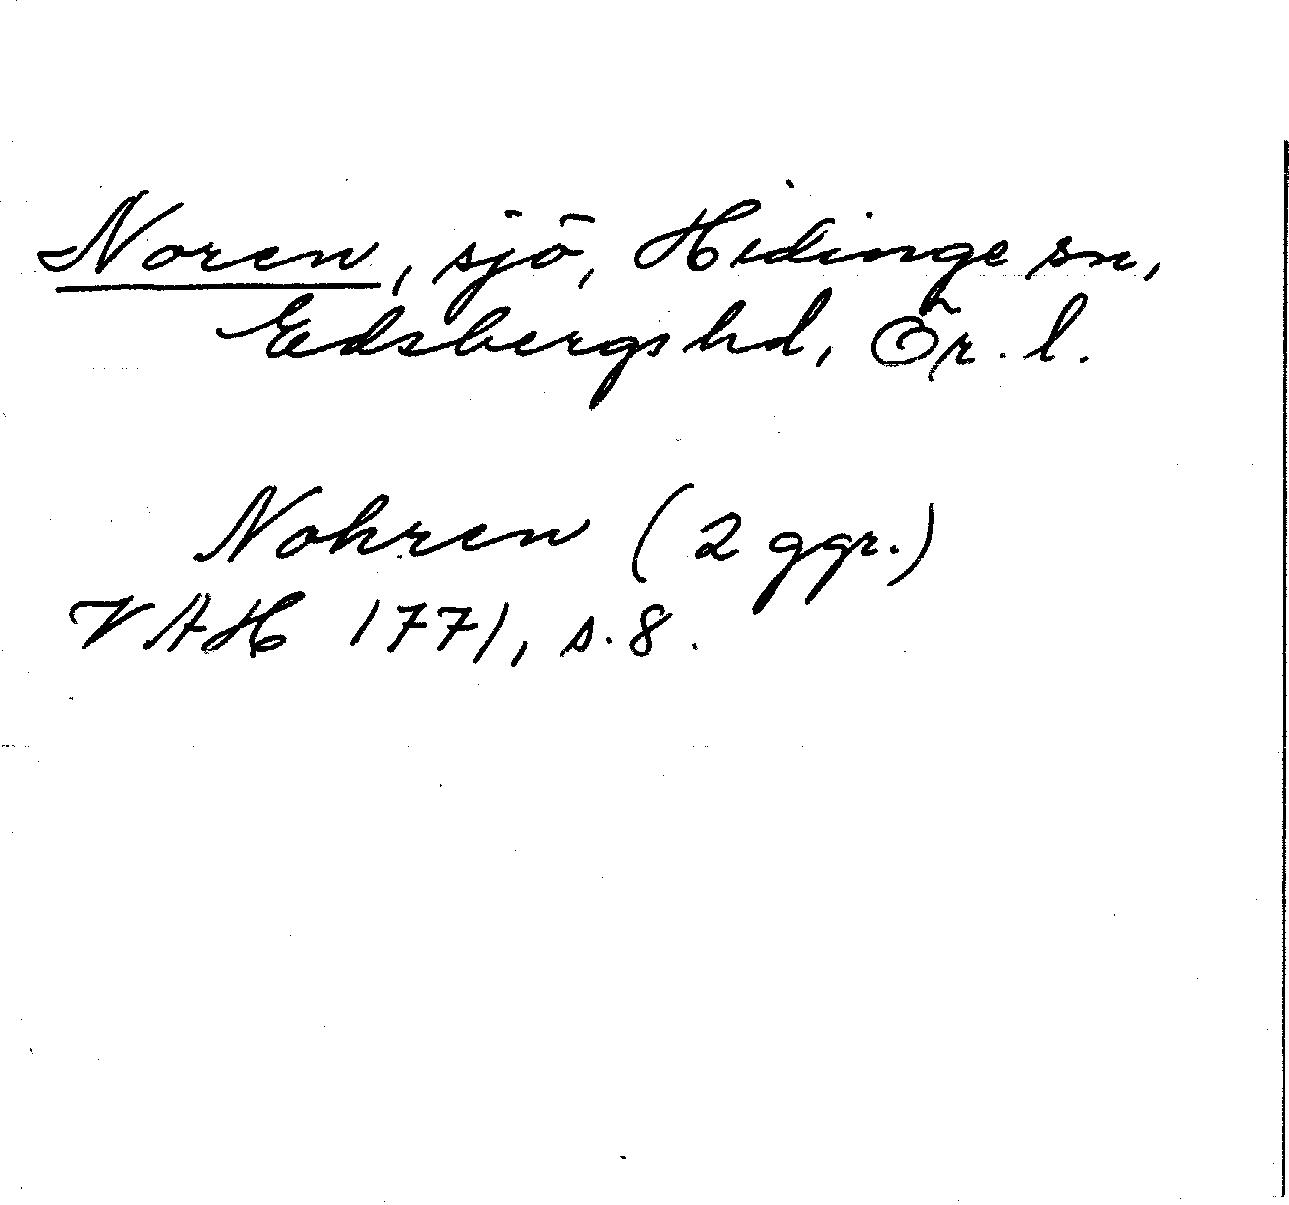 Noren, sjö, Hidinge sn,
Edsbergs hd, Ör. l.
Nohren (2 ggr.)
VAH 1771, s. 8.